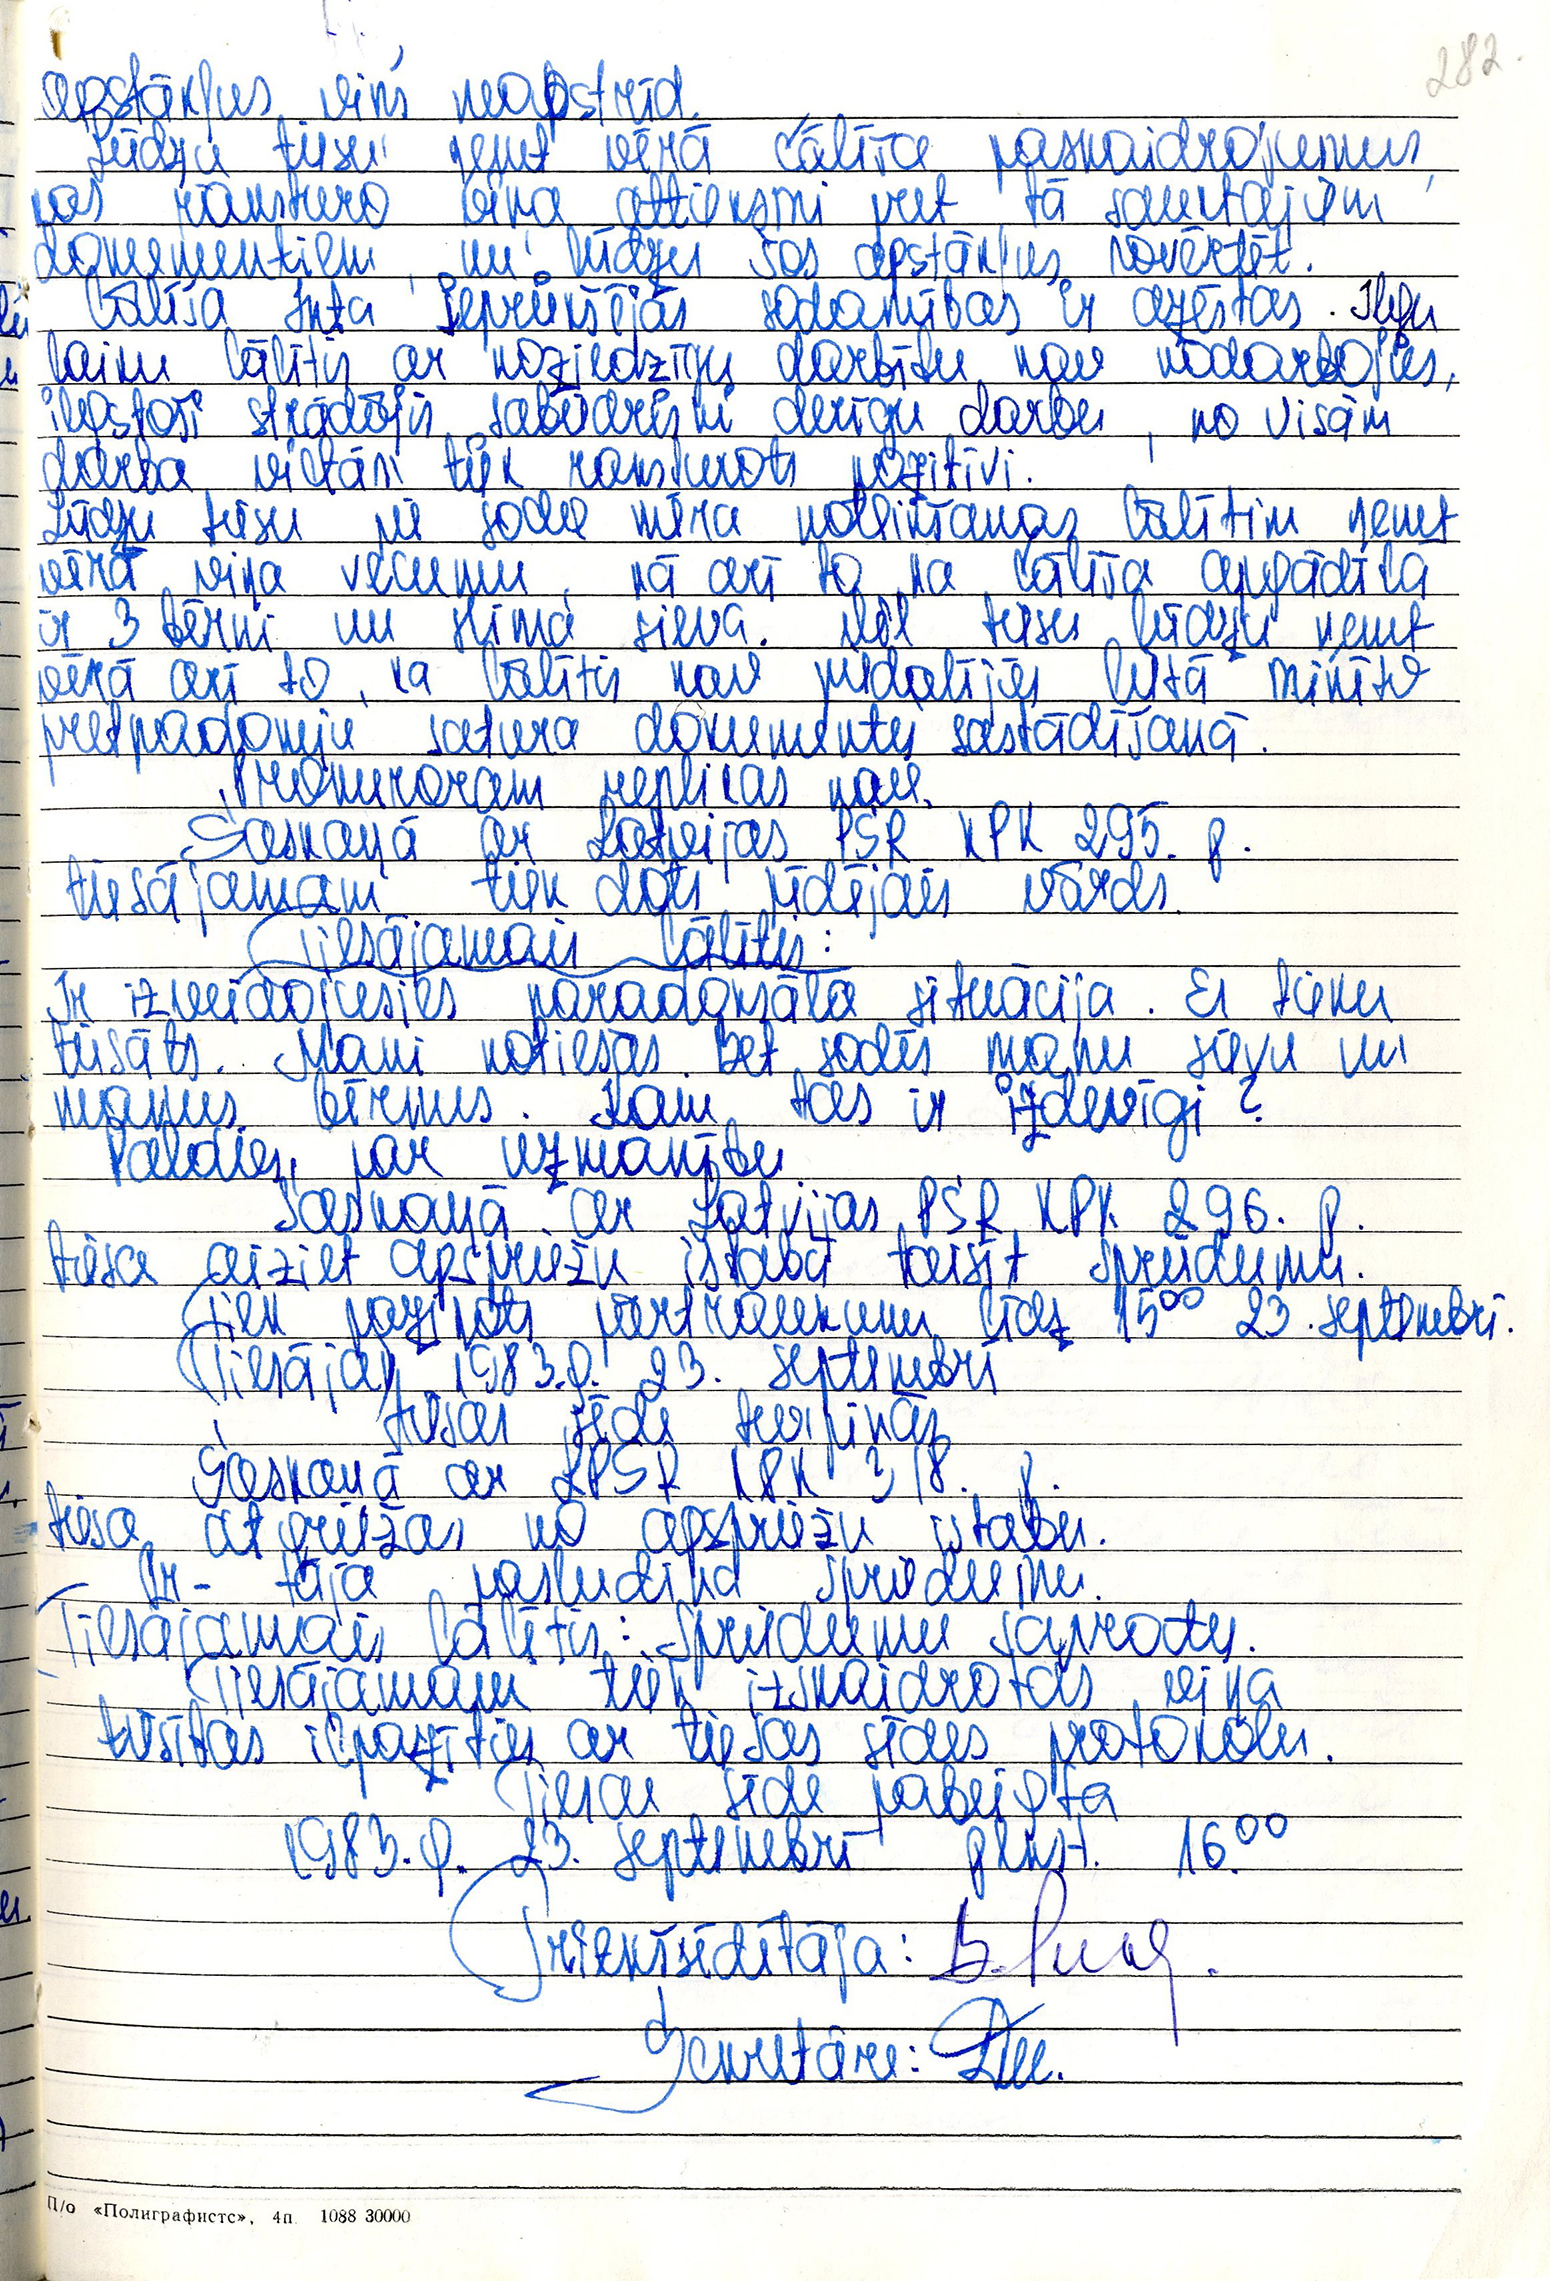 282.
apstākļus viņš neapstrīd.
Lūdzu tiesu ņemt vērā Cālīša paskaidrojumus,
kas raksturo viņa attieksmi pret tā sauktajiem
dokumentiem, un lūdzu šos apstākļus novērtēt.
Cālīša Inta iepriekšējās sodāmības ir dzēstas. Ilgu
laiku Cālītis ar noziedzīgu darbību nav nodarbojies,
ilgstoši strādājis sabiedriski derīgu darbu, no visām
darba vietām tiek raksturots pozitīvi.
Lūdzu tiesu pie soda mēra noteikšanas Cālītim ņemt
vērā viņa vecumu, kā arī to, ka Cālīša apgādībā
ir 3 bērni un slima sieva. Vēl tiesu lūdzu ņemt
vērā arī to, ka Cālītis nav piedalījies lietā minēto
pretpadomju satura dokumentu sastādīšanā.
Prokuroram replikas nav.
Saskaņā ar Latvijas PSR KPK 295. p.
tiesājamam tiek dots pēdējais vārds.
Tiesājamais Cālītis:
Ir izveidojusies paradoksāla situācija. Es tieku
tiesāts. Mani notiesās, bet sodīs manu sievu un
manus bērnus. Kam tas ir izdevīgi?
Paldies par uzmanību
Saskaņā ar Latvijas PSR KPK 296. p.
tiesa aiziet apspriežu istabā taisīt spriedumu.
Tiek paziņots pārtraukums līdz 15⁰⁰ 23. septembrī.
1983.g. 23. septembrī
tiesas sēde turpinās
Saskaņā ar LPSR KPK 318. p.
tiesa atgriežas no apspriežu istabas.
Pr-tāja pasludina spriedumu.
Tiesājamais Cālītis: Spriedumu saprotu.
Tiesājamam tiek izskaidrotas viņa
tiesības iepazīties ar tiesas sēdes protokolu.
Tiesas sēde pabeigta
1983.g. 23. septembrī plkst. 16⁰⁰
Priekšsēdētāja:
Sekretāre:
П/о «Полиграфистс», 4п. 1088 30000